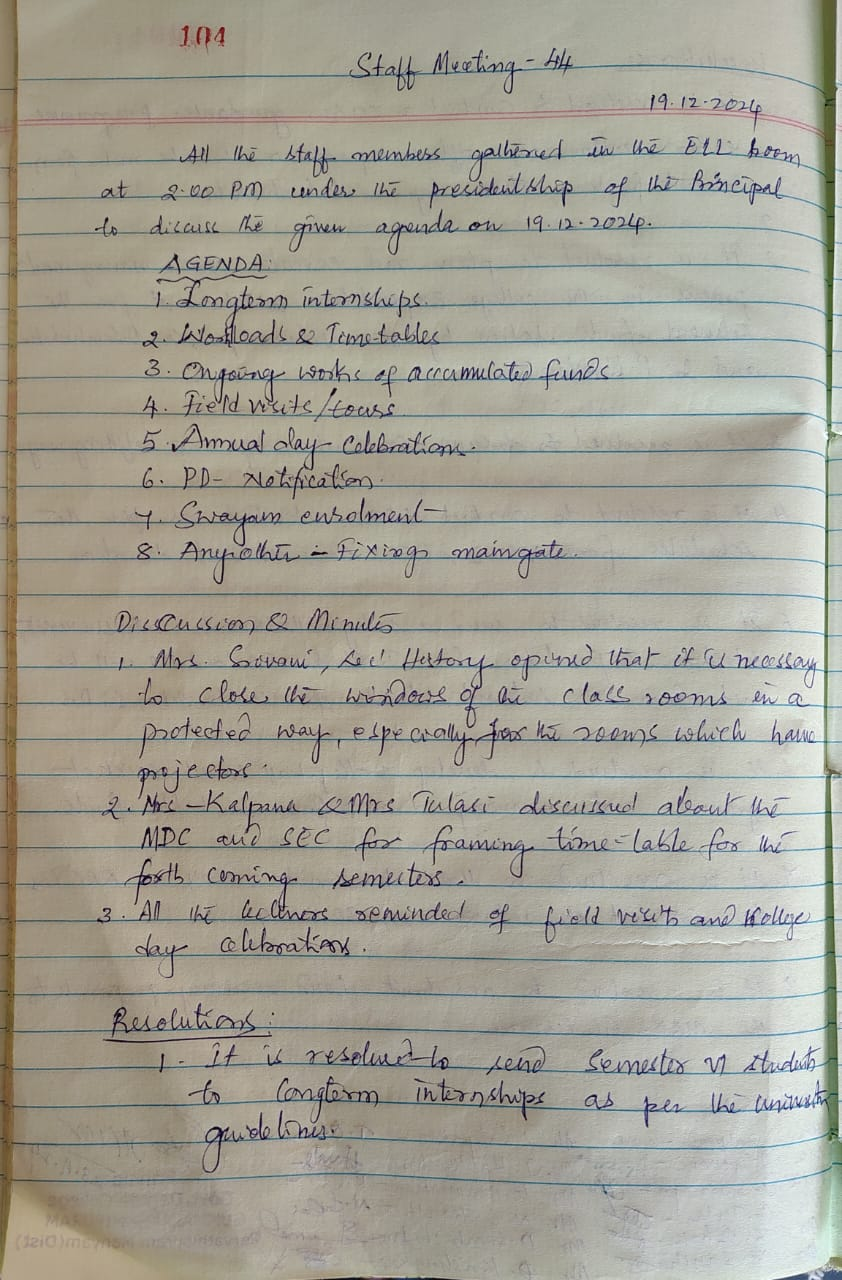 104
Staff Meeting - 44
19.12.2024
All the staff members gathered in the ELL Room
at 2.00 PM under the presidentship of the Principal
to discuss the given agenda on 19.12.2024.
AGENDA:
1. Longterm internships.
2. Workloads & Timetables
3. Ongoing works of accumulated funds
4. Field visits/tours
5. Annual day Celebrations.
6. PD- Notification.
7. Swayam enrolment
8. Anyother - Fixing maingate.
Disscussion & Minutes
1. Mrs. Sravani, Lec' History opined that it is necessay
to close the windows of the class rooms in a
protected way, especially for the rooms which have
projectors.
2. Mrs - Kalpana & Mrs Tulasi discussed about the
MDC and SEC for framing time-table for the
forth coming semesters.
3. All the lecturers reminded of field visits and Kollege
day celebrations.
Resolutions:
1. It is resolved to send Semester VI students
to longterm internships as per the university
guidelines.